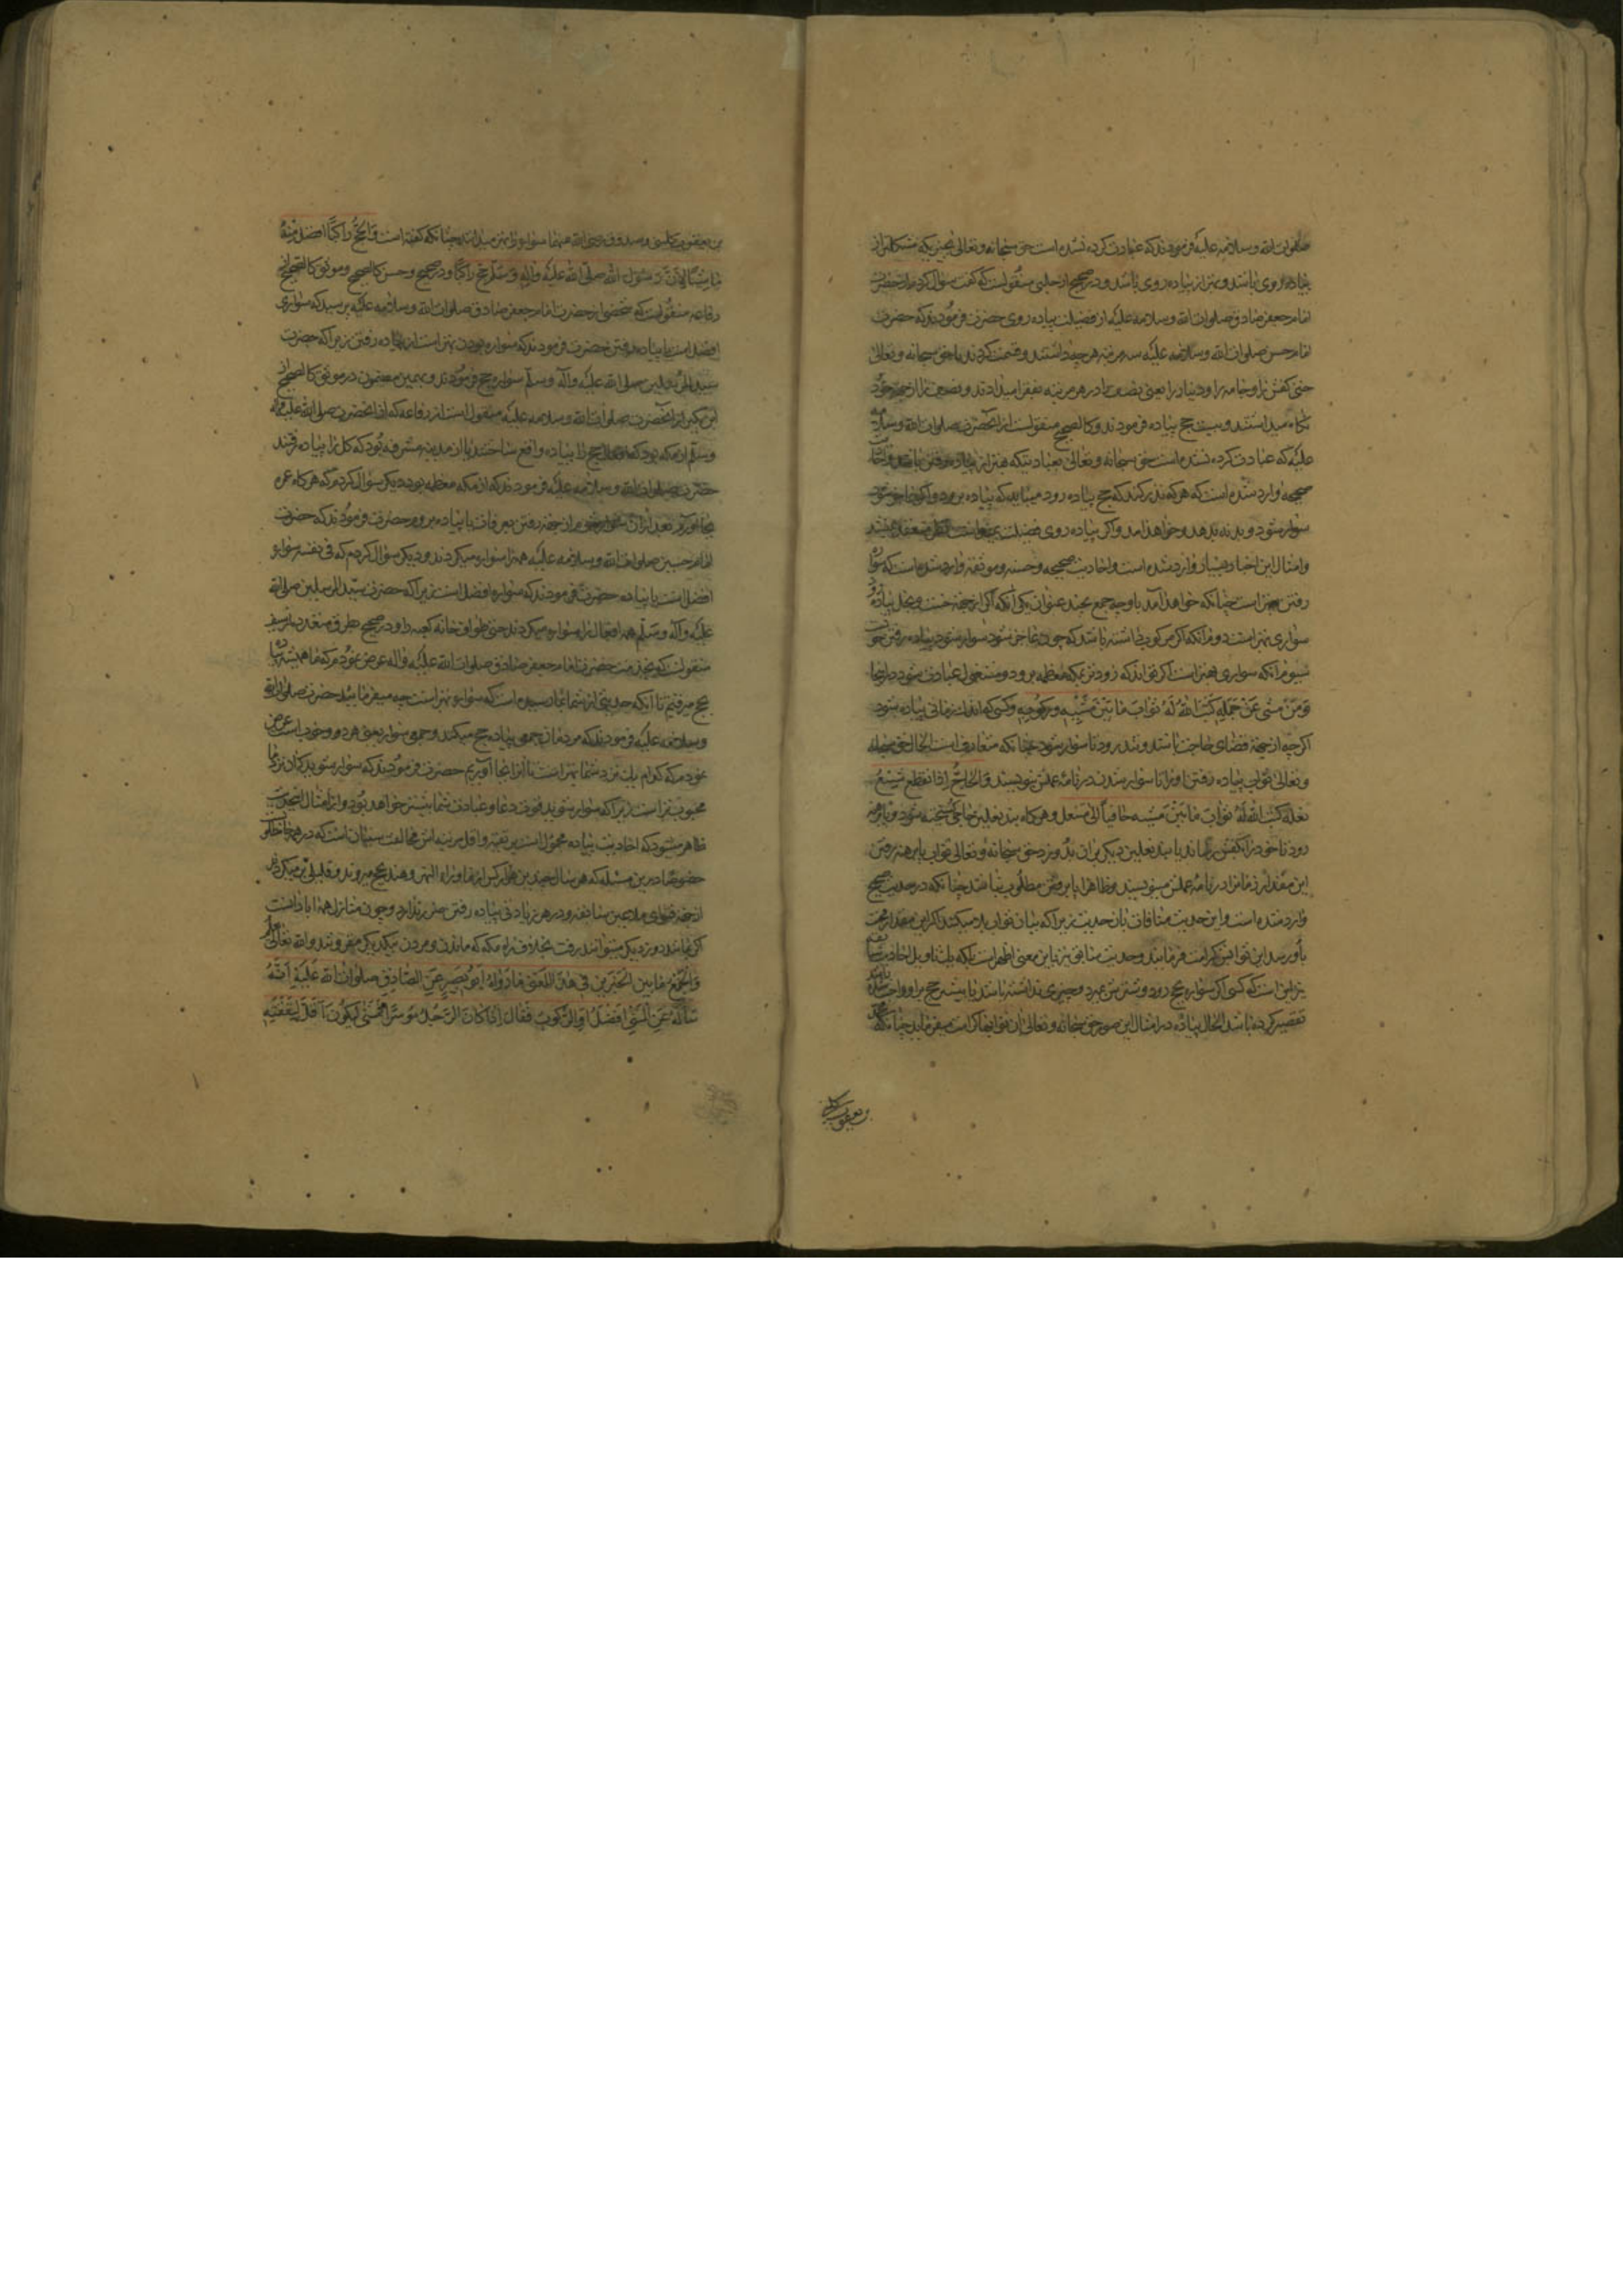 صلوات الله و سلامه علیه فرمودند که عبادت کرده نشده است حق سبحانه و تعالی بچیزیکه مشکلتر از
پیاده روی باشد و بهتر از پیاده روی باشد و در صحیح از حلبی منقولست که گفت سؤال کردم از حضرت
امام جعفر صادق صلوات الله و سلامه علیه از فضیلت پیاده روی حضرت فرمودند که حضرت
امام حسن صلوات الله و سلامه علیه سه مرتبه هرچه داشتند قسمت کردند با حق سبحانه و تعالی
حتی کفش را و جامه را و دینار را یعنی نصف را در هر مرتبه بفقرا میدادند و نصف را از جهة خود
نگاه میداشتند و بیست حج پیاده فرمودند و کالصحیح منقولست از آنحضرت صلوات الله و سلامه
علیه که عبادت کرده نشده است حق سبحانه و تعالی بعبادتیکه بهتر از پیاده رفتن باشد و احادیث
صحیحه وارد شده است که هر که نذر کند که حج پیاده رود میباید که پیاده برود و اگر عاجز شود
سوار شود و بدنه بدهد و خواهد آمد و اگر پیاده روی فضیلت نمیداشت نذر منعقد نمیشد
و امثال این اخبار بسیار وارد شده است و احادیث صحیحه و حسنه و موثقه وارد شده است که سواره
رفتن بهتر است چنانکه خواهد آمد با وجه جمع بچند عنوان یکی آنکه اگر از جهة خست و بخل پیاده رود
سواری بهتر است دوم آنکه اگر مرکوب داشته باشد که چون عاجز شود سوار شود پیاده رفتن خوبست
سیوم آنکه سواری بهتر است اگر تواند که زودتر بمکه معظمه برود و مشغول عبادت شود در آنجا
وَمَنْ مَشٰی عَنْ جَمَلِهِ کَتَبَ اللهُ لَهُ ثَوَابَ مَا بَیْنَ مَشْیِهِ وَ رُکُوبِهِ و کسی که اندک زمانی پیاده شود
اگرچه از جهة قضای حاجت باشد و تند رود تا سوار شود چنانکه متعارفست الحال حق سبحانه
و تعالی ثواب پیاده رفتن او را تا سوار شدن در نامه عملش نویسد وَ الْحَاجُّ إِذَا انْقَطَعَ شِسْعُ
نَعْلِهِ کَتَبَ اللهُ لَهُ ثَوَابَ مَا بَیْنَ مَشْیِهِ حَافِیًا إِلٰی مُنْتَعَلٍ و هر گاه بند نعلین حاجی گسیخته شود و پا برهنه
رود تا خود را بکفش رساند یا بند نعلین دیگر بر آن بندد حق سبحانه و تعالی ثواب پا برهنه رفتن
این مقدار زمان را در نامه عملش مینویسد و ظاهرا پا برهنه رفتن مطلوب نباشد چنانکه در حدیث صحیح
وارد شده است و این حدیث منافات با آن حدیث ندارد زیرا که بیان ثواب بلا میکند که اگر این مقدار محنت
باو رسد این ثوابش کرامت فرمایند و حدیث سابق نیز باین معنی اظهر است بلکه یک تاویل احادیث سابقه
نیز این است که کسی اگر سواره بحج رود و شترش بمیرد و چیزی نداشته باشد یا پیشتر حج بر او واجب شده باشد
تقصیر کرده باشد الحال پیاده در امثال این صور حق سبحانه و تعالی آن ثوابها کرامت میفرماید چنانکه محمد
بن یعقوب کلینی
بن یعقوب کلینی و صدوق رضی الله عنهما سواره را بهتر میدانند چنانکه گفته است وَ الْحَجُّ رَاکِبًا أَفْضَلُ مِنْهُ
مَاشِیًا لِأَنَّ رَسُولَ اللهِ صَلَّی اللهُ عَلَیْهِ وَ آلِهِ وَ سَلَّمَ حَجَّ رَاکِبًا و در صحیح و حسن کالصحیح و موثق کالصحیح از
رفاعه منقولست که شخصی از حضرت امام جعفر صادق صلوات الله و سلامه علیه پرسید که سواری
افضل است یا پیاده رفتن حضرت فرمودند که سواره بودن بهتر است از پیاده رفتن زیرا که حضرت
سید المرسلین صلی الله علیه و آله و سلم سواره حج فرمودند و بهمین مضمون در موثق کالصحیح از
ابن بکیر از آنحضرت صلوات الله و سلامه علیه منقول است از رفاعه که آیا آنحضرت صلی الله علیه و آله
و سلم از مکه بود که افعال حج را پیاده واقع ساختند یا از مدینه مشرفه بود که کل را پیاده رفتند
حضرت صلوات الله و سلامه علیه فرمودند که از مکه معظمه بود دیگر سؤال کردم که هر گاه عمره
بجا آورم بعد از آن سوار شوم از جهة رفتن بعرفات یا پیاده بروم حضرت فرمودند که حضرت
امام حسین صلوات الله و سلامه علیه همه را سواره میکردند و دیگر سؤال کردم که فی نفسه سواره
افضل است یا پیاده حضرت فرمودند که سواره افضل است زیرا که حضرت سید المرسلین صلی الله
علیه و آله و سلم همه افعال را سواره میکردند حتی طواف خانه کعبه را و در صحیح بطرق متعدده از سیف
منقولست که بخدمت حضرت امام جعفر صادق صلوات الله علیه و آله عرض نمودم که ما همیشه پیاده
بحج میرفتیم تا آنکه حدیثی از شما بما رسیده است که سواره بهتر است چه میفرمائید حضرت صلوات الله
و سلامه علیه فرمودند که مردمان جمعی پیاده حج میکنند و جمعی سواره یعنی هر دو خوبست عرض
نمودم که کدام یک نزد شما بهتر است تا آنرا بجا آوریم حضرت فرمودند که سوار شوید که آن نزد ما
محبوب‌تر است زیرا که سوار شوید قوت دعا و عبادت شما بیشتر خواهد بود و از امثال این حدیث
ظاهر میشود که احادیث پیاده محمول است بر تقیه و اقل مرتبه اش مخالفت سنیان است که در همه جا خاطر
خصوصا در این مسئله که هر سال چندین هزار کس از ما وراء النهر و هند بحج میروند و قلیلی بر میگردند
از جهة فتوای ملاعین منافقه و در هر بادیه پیاده رفتن ضرر ندارد و چون منازل همه آبادانست
اگر بمانند روز دیگر میتوانند رفت بخلاف راه مکه که ماندن و مردن بیکدیگر مقرونند والله تعالی یعلم
وَ الْجَمْعُ مَا بَیْنَ الْخَبَرَیْنِ فِی هٰذَا الْمَعْنٰی مَا رَوَاهُ أَبُو بَصِیرٍ عَنِ الصَّادِقِ صلوات الله عَلَیْهِ أَنَّهُ
سَأَلَهُ عَنِ الْمَشْیِ أَفْضَلُ أَوِ الرُّکُوبُ فَقَالَ إِذَا کَانَ الرَّجُلُ مُوسِرًا فَمَشٰی لِیَکُونَ أَقَلَّ لِنَفَقَتِهِ